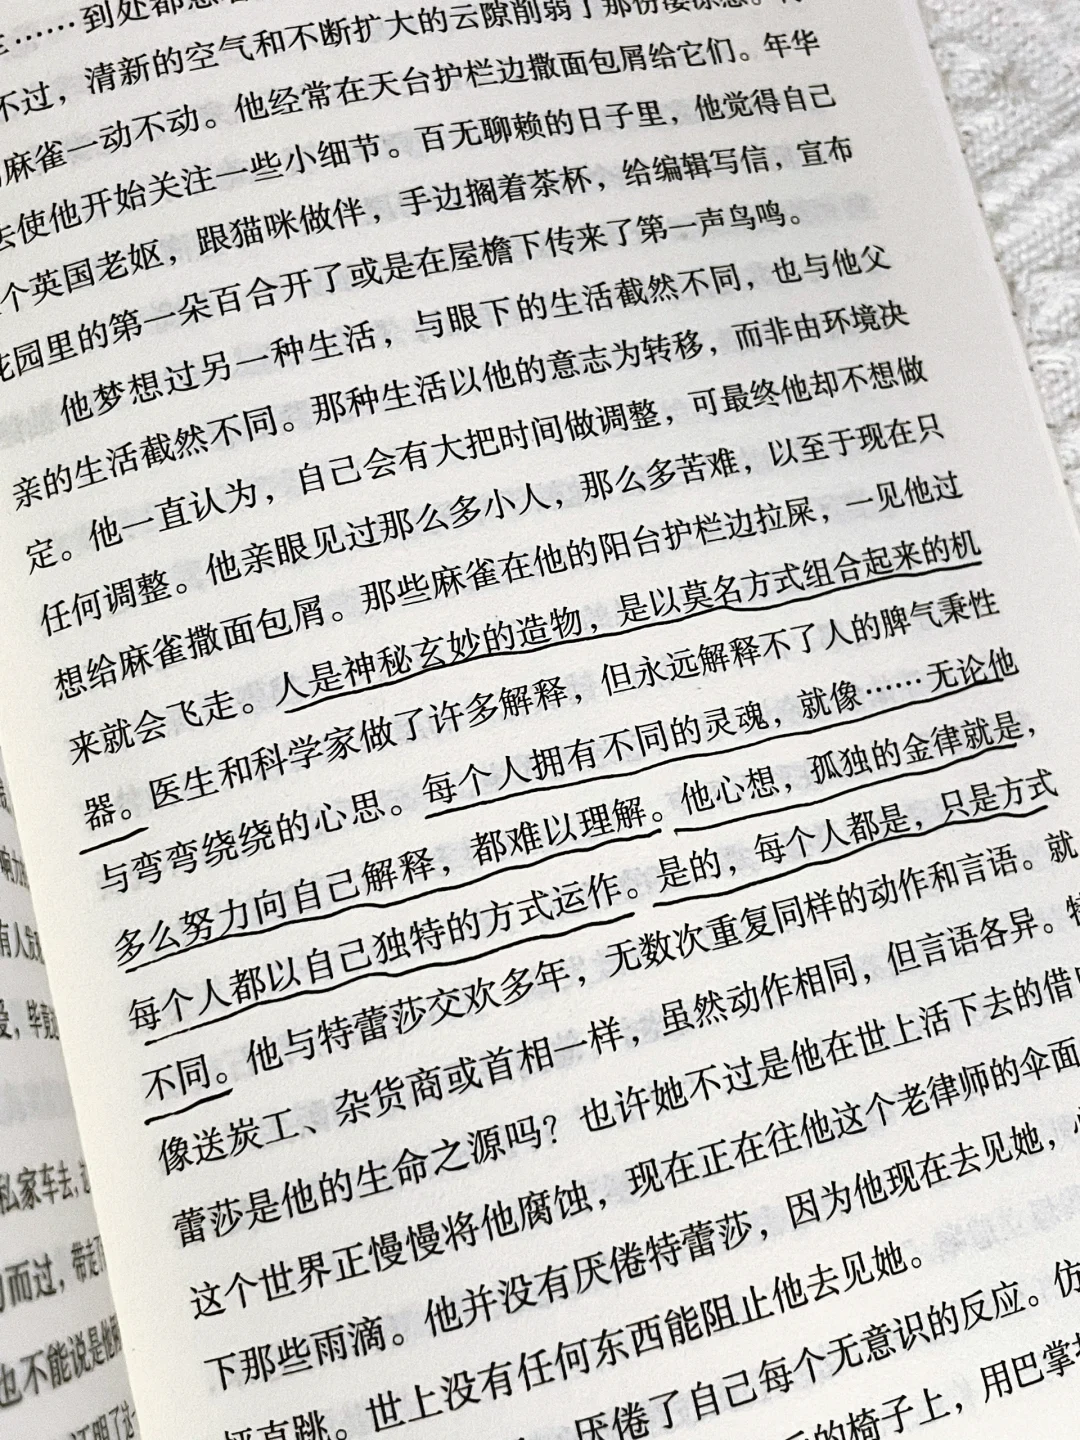 ……到处都
不过，清新的空气和不断扩大的云隙削弱了那份凄凉感。
麻雀一动不动。他经常在天台护栏边撒面包屑给它们。年华
去使他开始关注一些小细节。百无聊赖的日子里，他觉得自己
个英国老妪，跟猫咪做伴，手边搁着茶杯，给编辑写信，宣布
花园里的第一朵百合开了或是在屋檐下传来了第一声鸟鸣。
他梦想过另一种生活，与眼下的生活截然不同，也与他父
亲的生活截然不同。那种生活以他的意志为转移，而非由环境决
定。他一直认为，自己会有大把时间做调整，可最终他却不想做
任何调整。他亲眼见过那么多小人，那么多苦难，以至于现在只
想给麻雀撒面包屑。那些麻雀在他的阳台护栏边拉屎，一见他过
来就会飞走。人是神秘玄妙的造物，是以莫名方式组合起来的机
器。医生和科学家做了许多解释，但永远解释不了人的脾气秉性
与弯弯绕绕的心思。每个人拥有不同的灵魂，就像……无论他
多么努力向自己解释，都难以理解。他心想，孤独的金律就是，
每个人都以自己独特的方式运作。是的，每个人都是，只是方式
不同。他与特蕾莎交欢多年，无数次重复同样的动作和言语。就
像送炭工、杂货商或首相一样，虽然动作相同，但言语各异。特
蕾莎是他的生命之源吗？也许她不过是他在世上活下去的借口
这个世界正慢慢将他腐蚀，现在正在往他这个老律师的伞面
下那些雨滴。他并没有厌倦特蕾莎，因为他现在去见她，心
怦直跳。世上没有任何东西能阻止他去见她。
厌倦了自己每个无意识的反应。仿
的椅子上，用巴掌
有人
爱，毕竟
私家车去，
而过，带走
也不能说是他